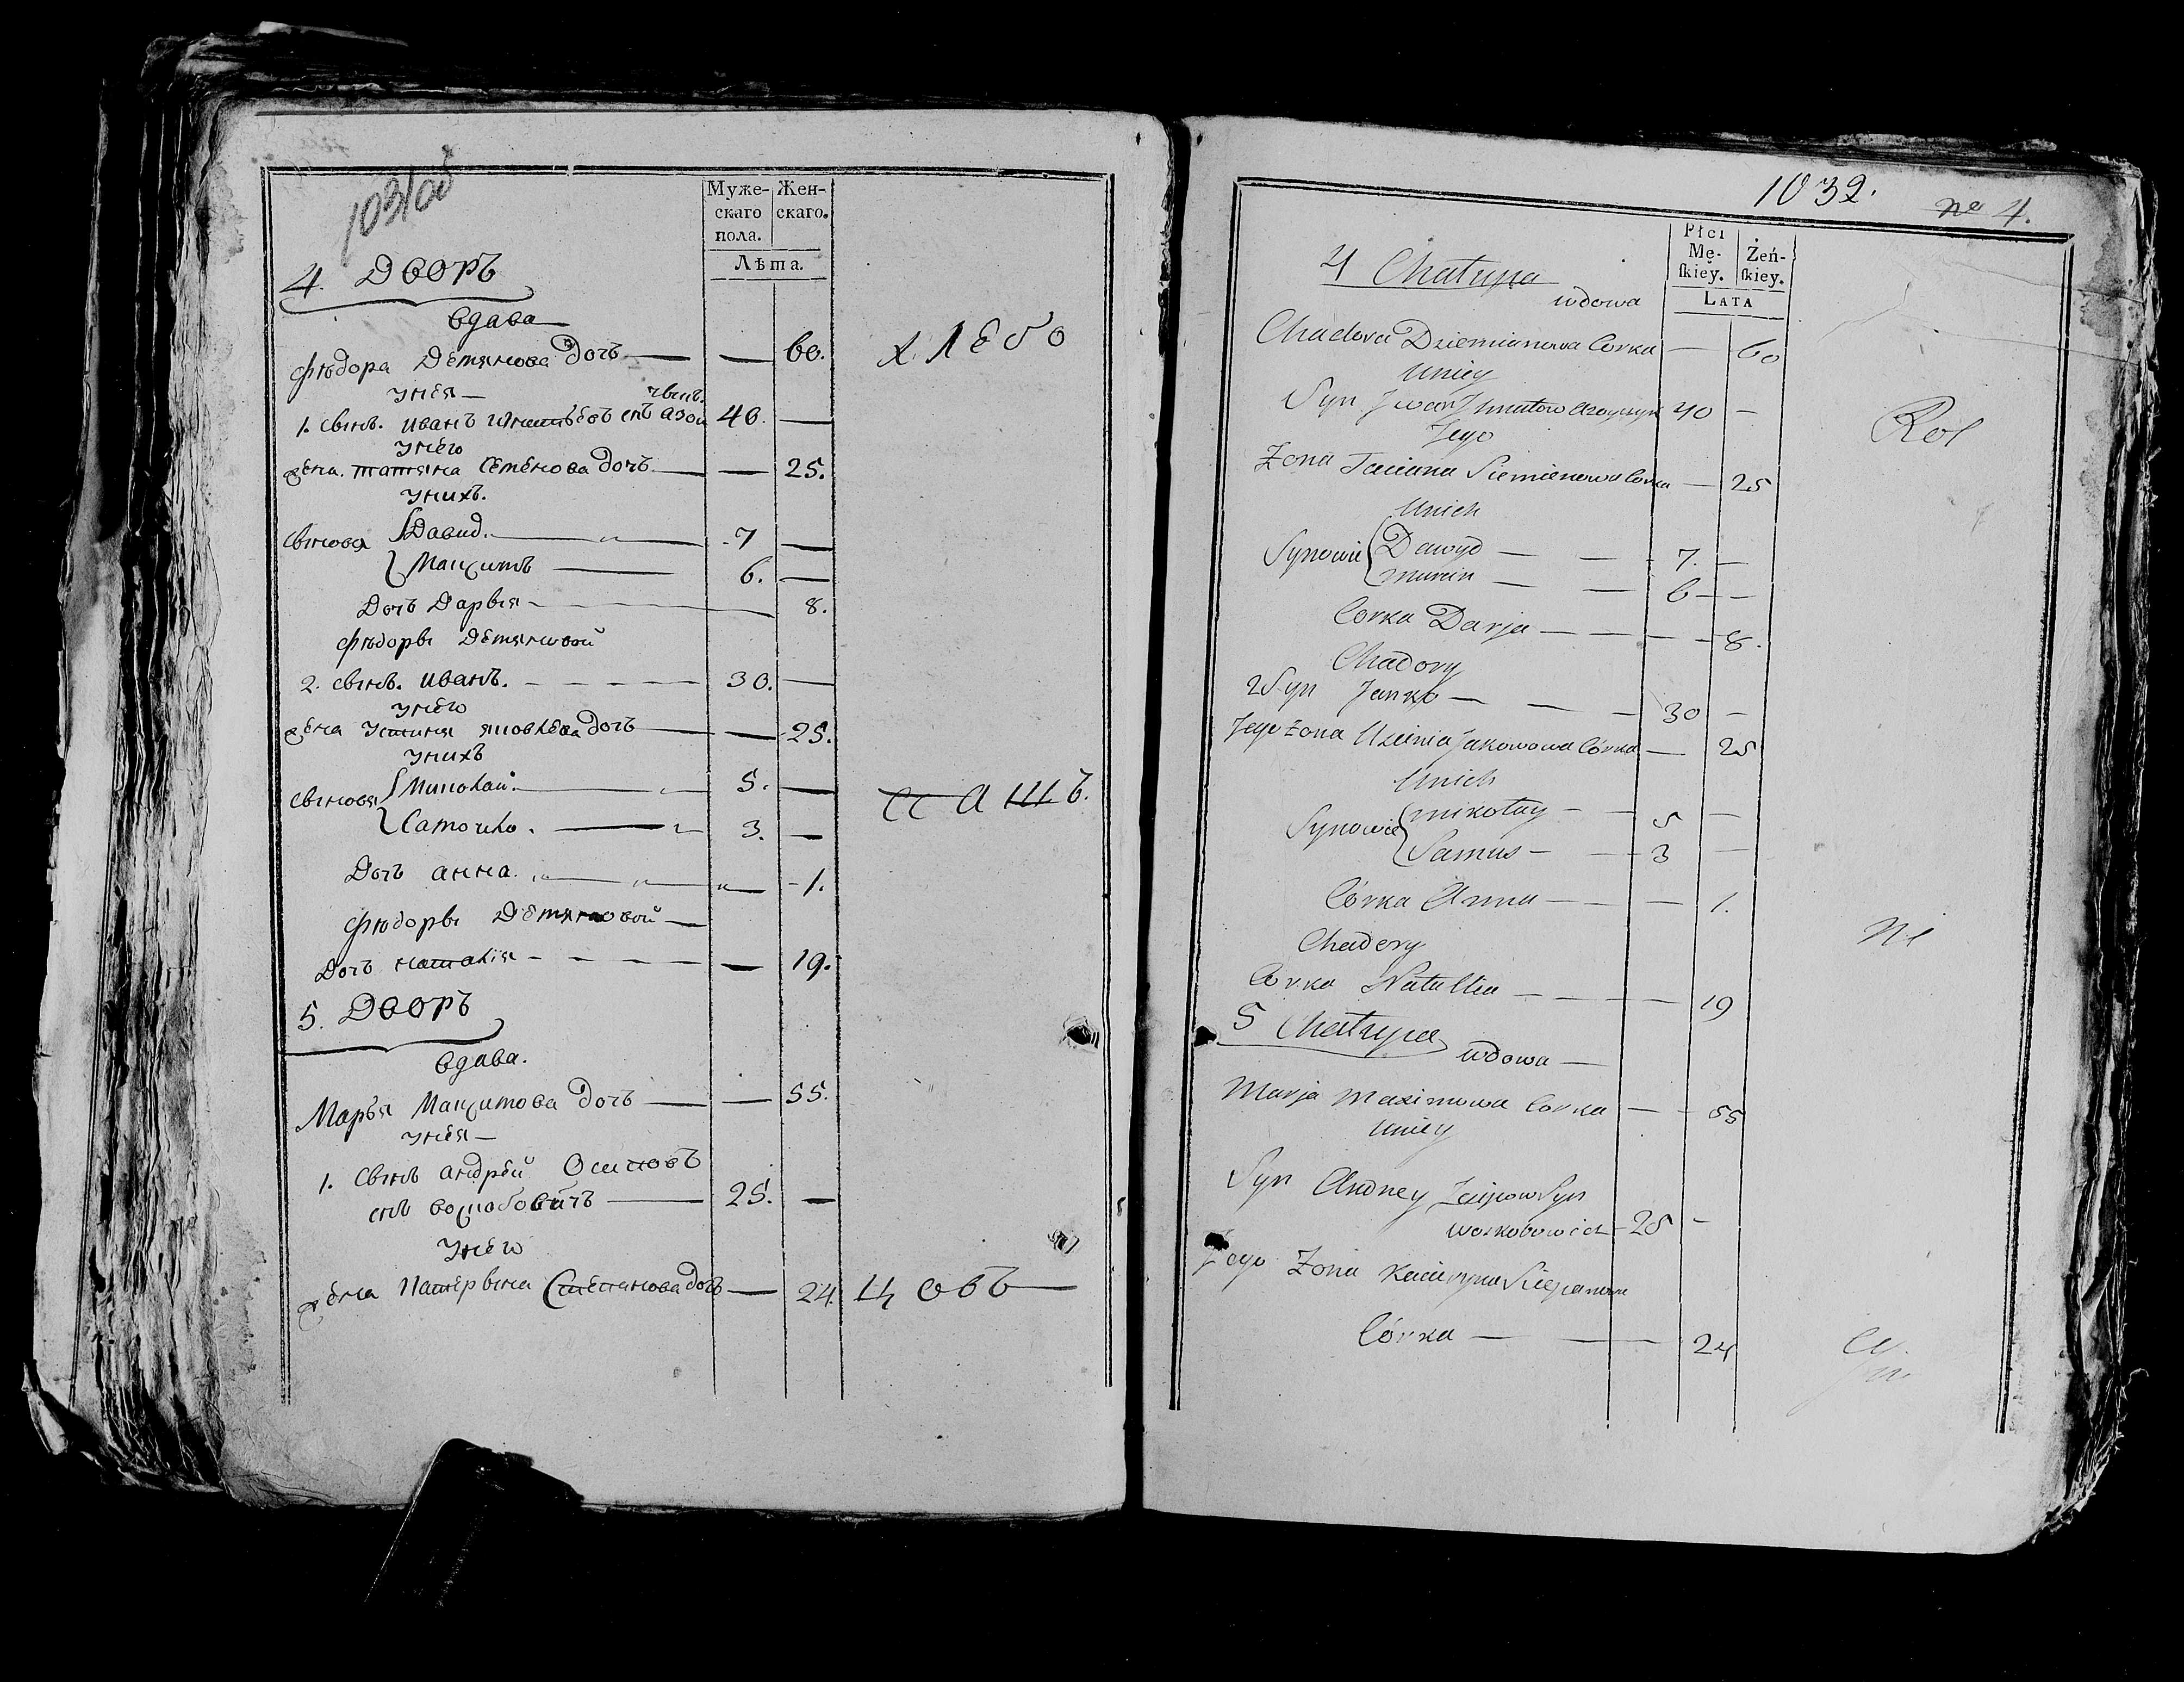 1031об
Муже-
скаго
пола.
Жен-
скаго.
Лѣта.
4. Дворъ
вдава
Фѣдора Демянова дочъ — — 60.
унея —
чвич.
1. свнъ. иванъ снъ азой 40. —
унего
жена. татяна Семенова дочъ — — 25.
унихъ.
свновя Давид. — 7 —
Макситъ — 6. —
Дочъ Дарвя — 8.
Фѣдорвı Демяновой
2. свнъ. иванъ. — 30. —
унего
жена Устиня яковлева дочъ — — 25.
унихъ
свновя Миколай — 5. —
Самойло. — 3. —
Дочъ анна. — 1.
Фѣдорвı Демяновой —
Дочъ наталія — — 19.
5. Дворъ
вдава.
Марья Макситова дочъ — — 55.
унея —
1. Свнъ андрей Осиповъ
снъ воскобовичъ — 25. —
Унего
жена Катервına Степанова дочъ — 24
хлебо
пашъ.
цовъ —
1032.
no 4.
Płci
Mę-
skiey.
Żeń-
skiey.
LATA
4 Chatupa
wdowa
Chadora Dziemianowa Corka — 60
Uniey
Syn Iwan 40 —
Jego
Zona Taciana Siemienowa Corka — 25
Unich
Synowie Dawyd — 7. —
— 6 —
Corka Darja — 8.
Chadory
2 Syn Janko — 30 —
Jego Zona Uscinia Jakowowa Córka — 25
Unich
Synowie mikołay — 5 —
Samus — 3 —
Córka Anna — 1.
Chadory
Corka Natallia — 19
5 Chatupa
wdowa —
Marja Maximowa Corka — 55
Uniey
Syn Andrey Syn
woskobowicz — 25 —
Jego Zona Kaciaryna Sciepanowa
Córka — 24
Rol
ni